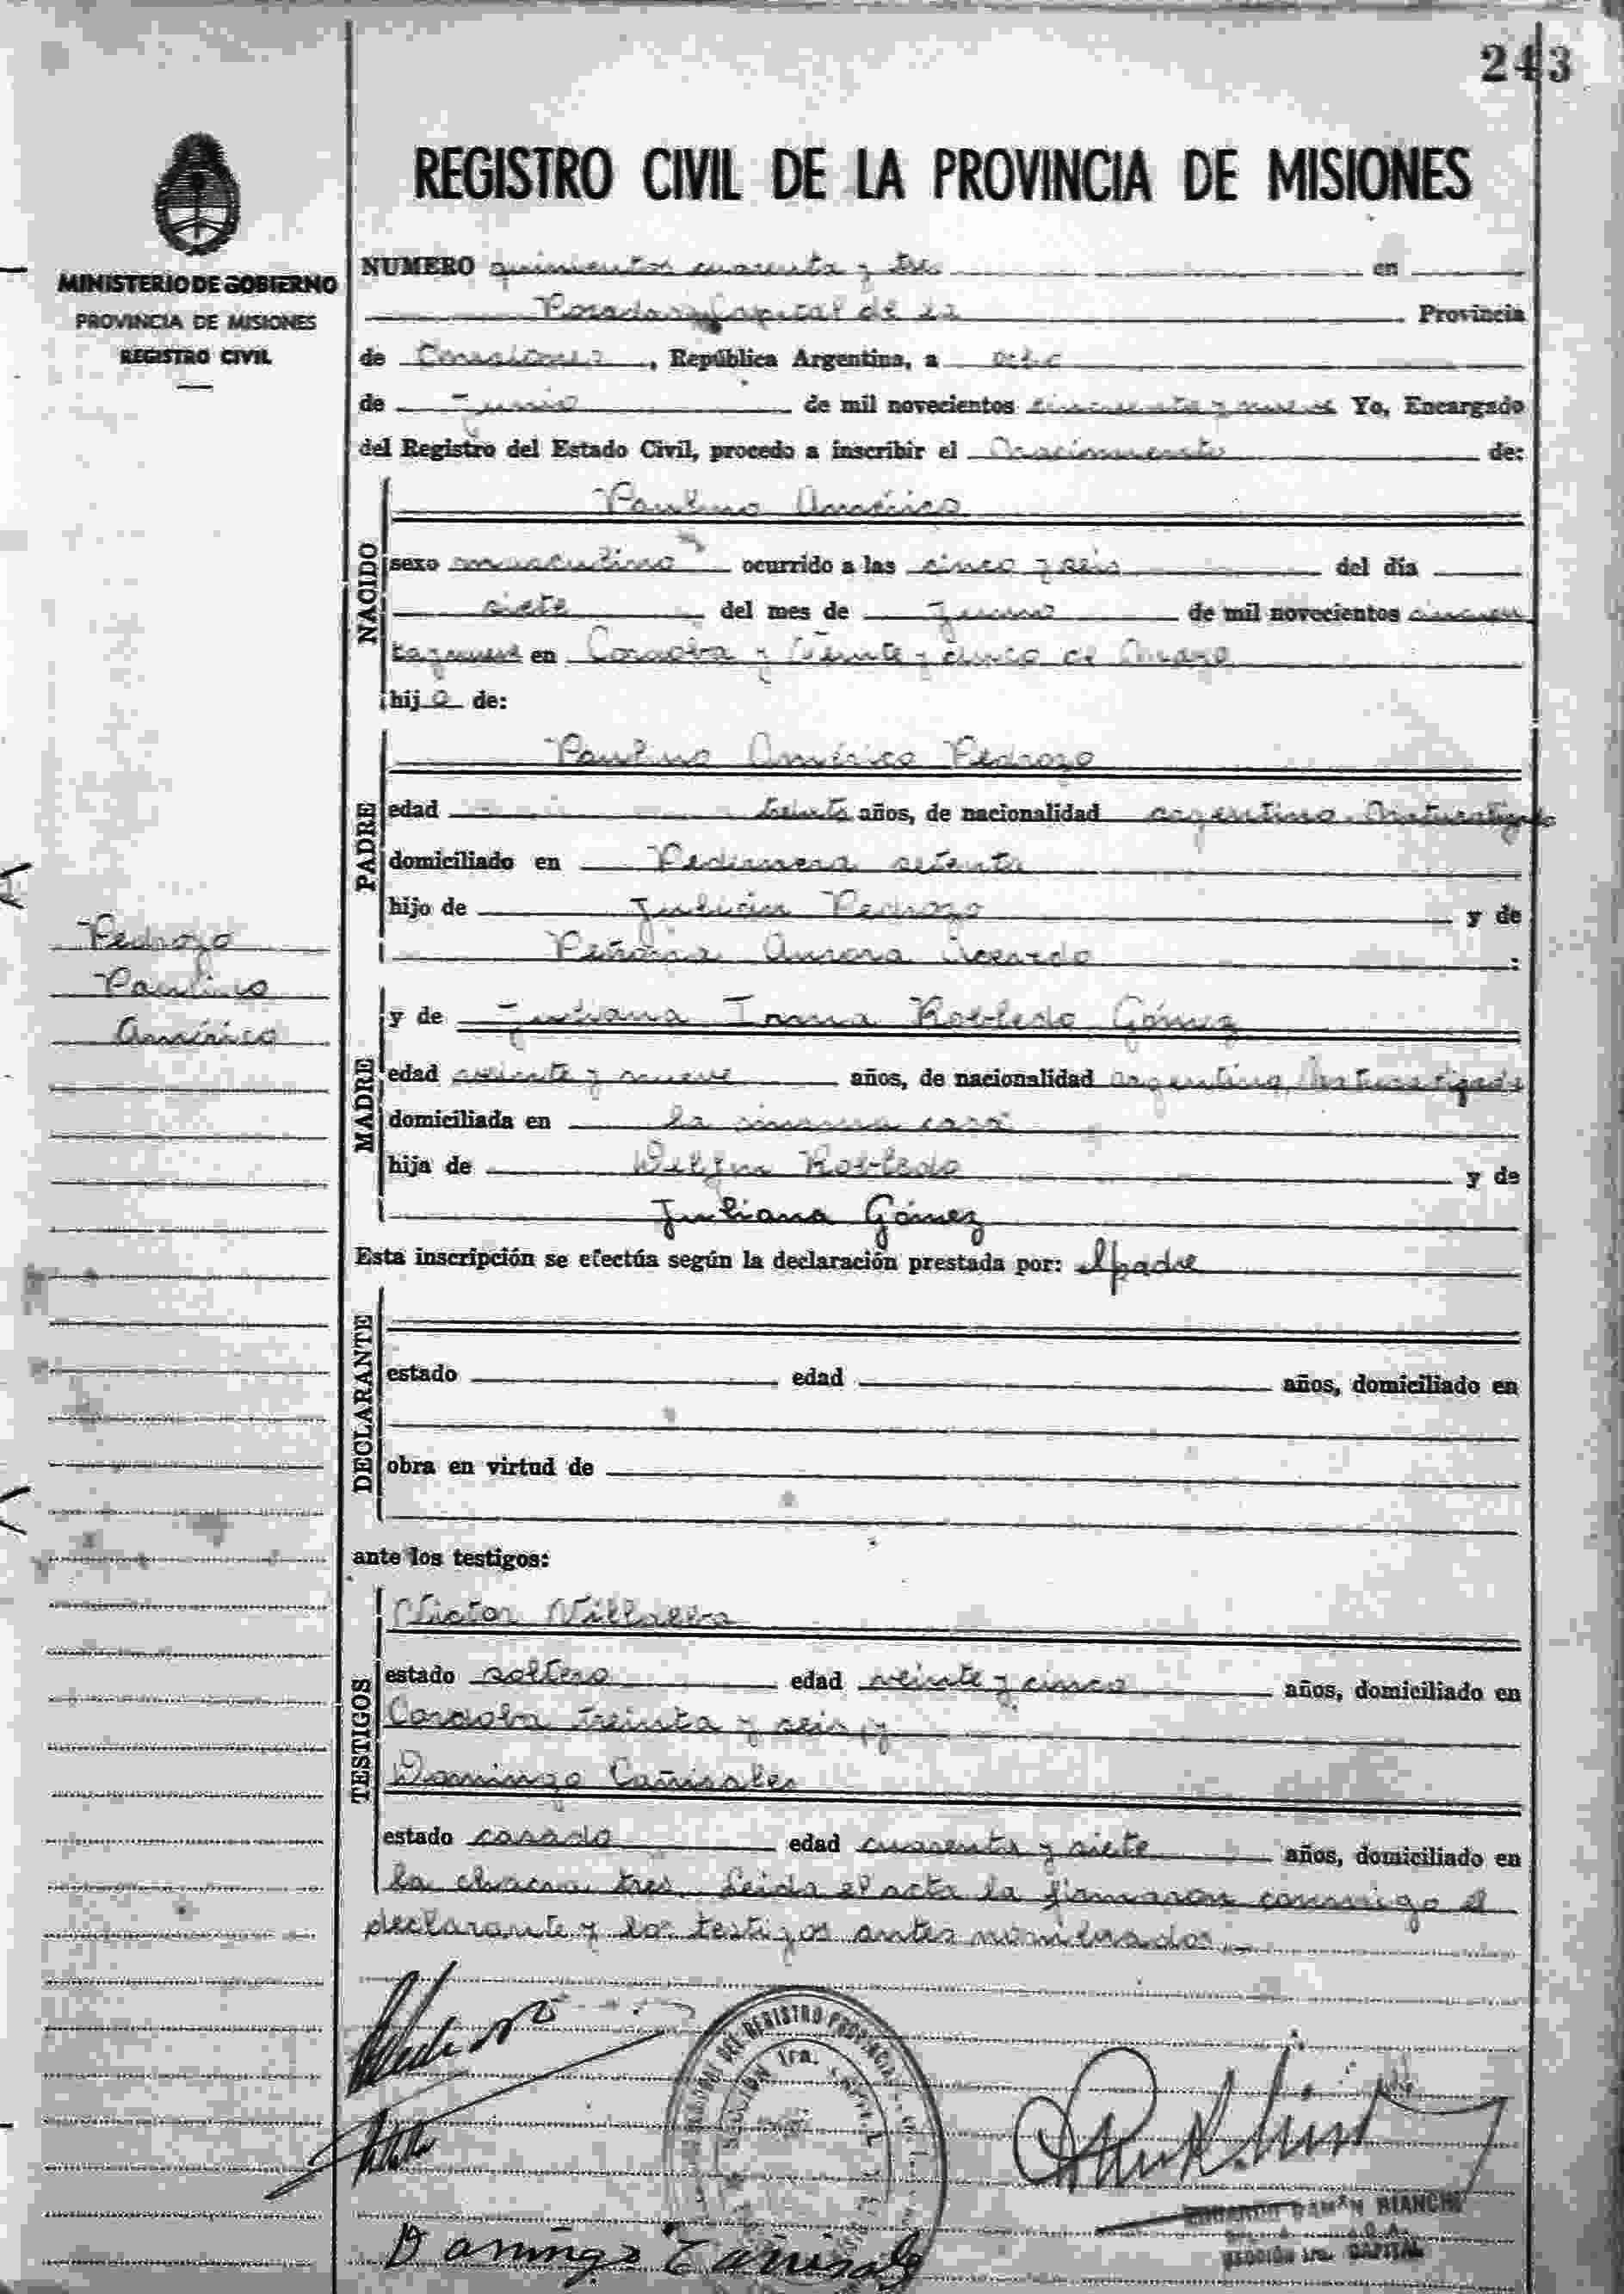 243
REGISTRO CIVIL DE LA PROVINCIA DE MISIONES
MINISTERIO DE GOBIERNO
PROVINCIA DE MISIONES
REGISTRO CIVIL
NUMERO quinientos cuarenta y tres en
Posadas, Capital de la Provincia
de Misiones, República Argentina, a ocho
de Junio de mil novecientos cincuenta y nueve Yo, Encargado
del Registro del Estado Civil, procedo a inscribir el Nacimiento de:
NACIDO
Paulino Américo
sexo masculino ocurrido a las cinco y seis del día
siete del mes de Junio de mil novecientos cincuen
ta y nueve en Cordoba y Veinte y cinco de Mayo
hijo de:
PADRE
Paulino Américo Pedrozo
edad treinta años, de nacionalidad argentino Naturalizado
domiciliado en Pedernera setenta
hijo de Julián Pedrozo y de
Aurora Acevedo;
Pedrozo
Paulino
Américo
MADRE
y de Juliana Irma Robledo Gómez
edad veinte y nueve años, de nacionalidad argentina, Naturalizada
domiciliada en la misma casa
hija de Delfin Robledo y de
Juliana Gómez
Esta inscripción se efectúa según la declaración prestada por: el padre
DECLARANTE
estado edad años, domiciliado en
obra en virtud de
ante los testigos:
TESTIGOS
Victor Villalba
estado soltero edad veinte y cinco años, domiciliado en
Cordoba treinta y seis, y
Domingo Cañisales
estado casado edad cuarenta y siete años, domiciliado en
la chacra tres. Leida el acta la firmaron conmigo el
declarante y los testigos antes nombrados.
DEL REGISTRO PROVINCIAL
SECCION 1ra.
DAMIAN BIANCHI
SECCIÓN 1ra. CAPITAL
Domingo Cañisales